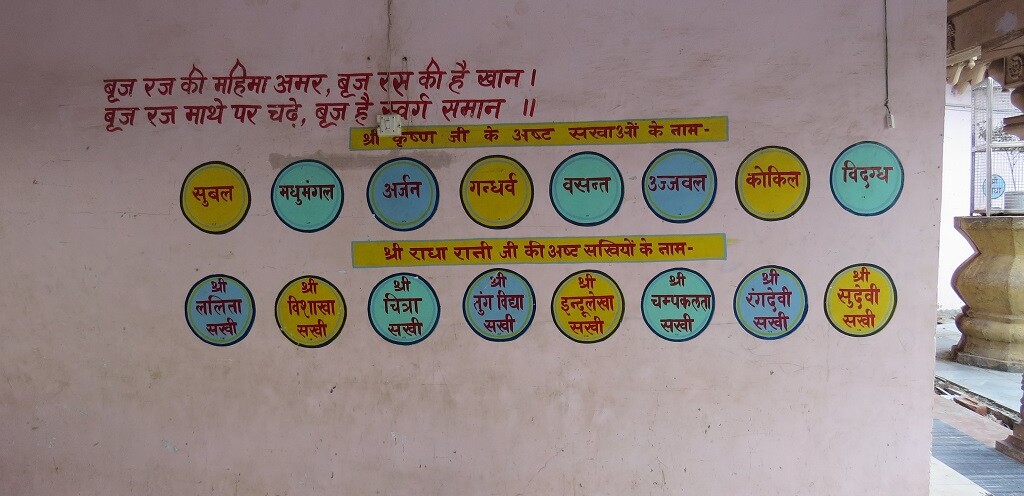 बृज रज की महिमा अमर, बृज रस की है खान।
बृज रज माथे पर चढ़े, बृज है स्वर्ग समान ॥
श्री कृष्ण जी के अष्ट सखाओं के नाम-
सुबल मधुमंगल अर्जन गन्धर्व वसन्त उज्जवल कोकिल विदग्ध
श्री राधा रानी जी की अष्ट सखियों के नाम-
श्री ललिता सखी
श्री विशाखा सखी
श्री चित्रा सखी
श्री तुंग विद्या सखी
श्री इन्दूलेखा सखी
श्री चम्पकलता सखी
श्री रंगदेवी सखी
श्री सुदेवी सखी